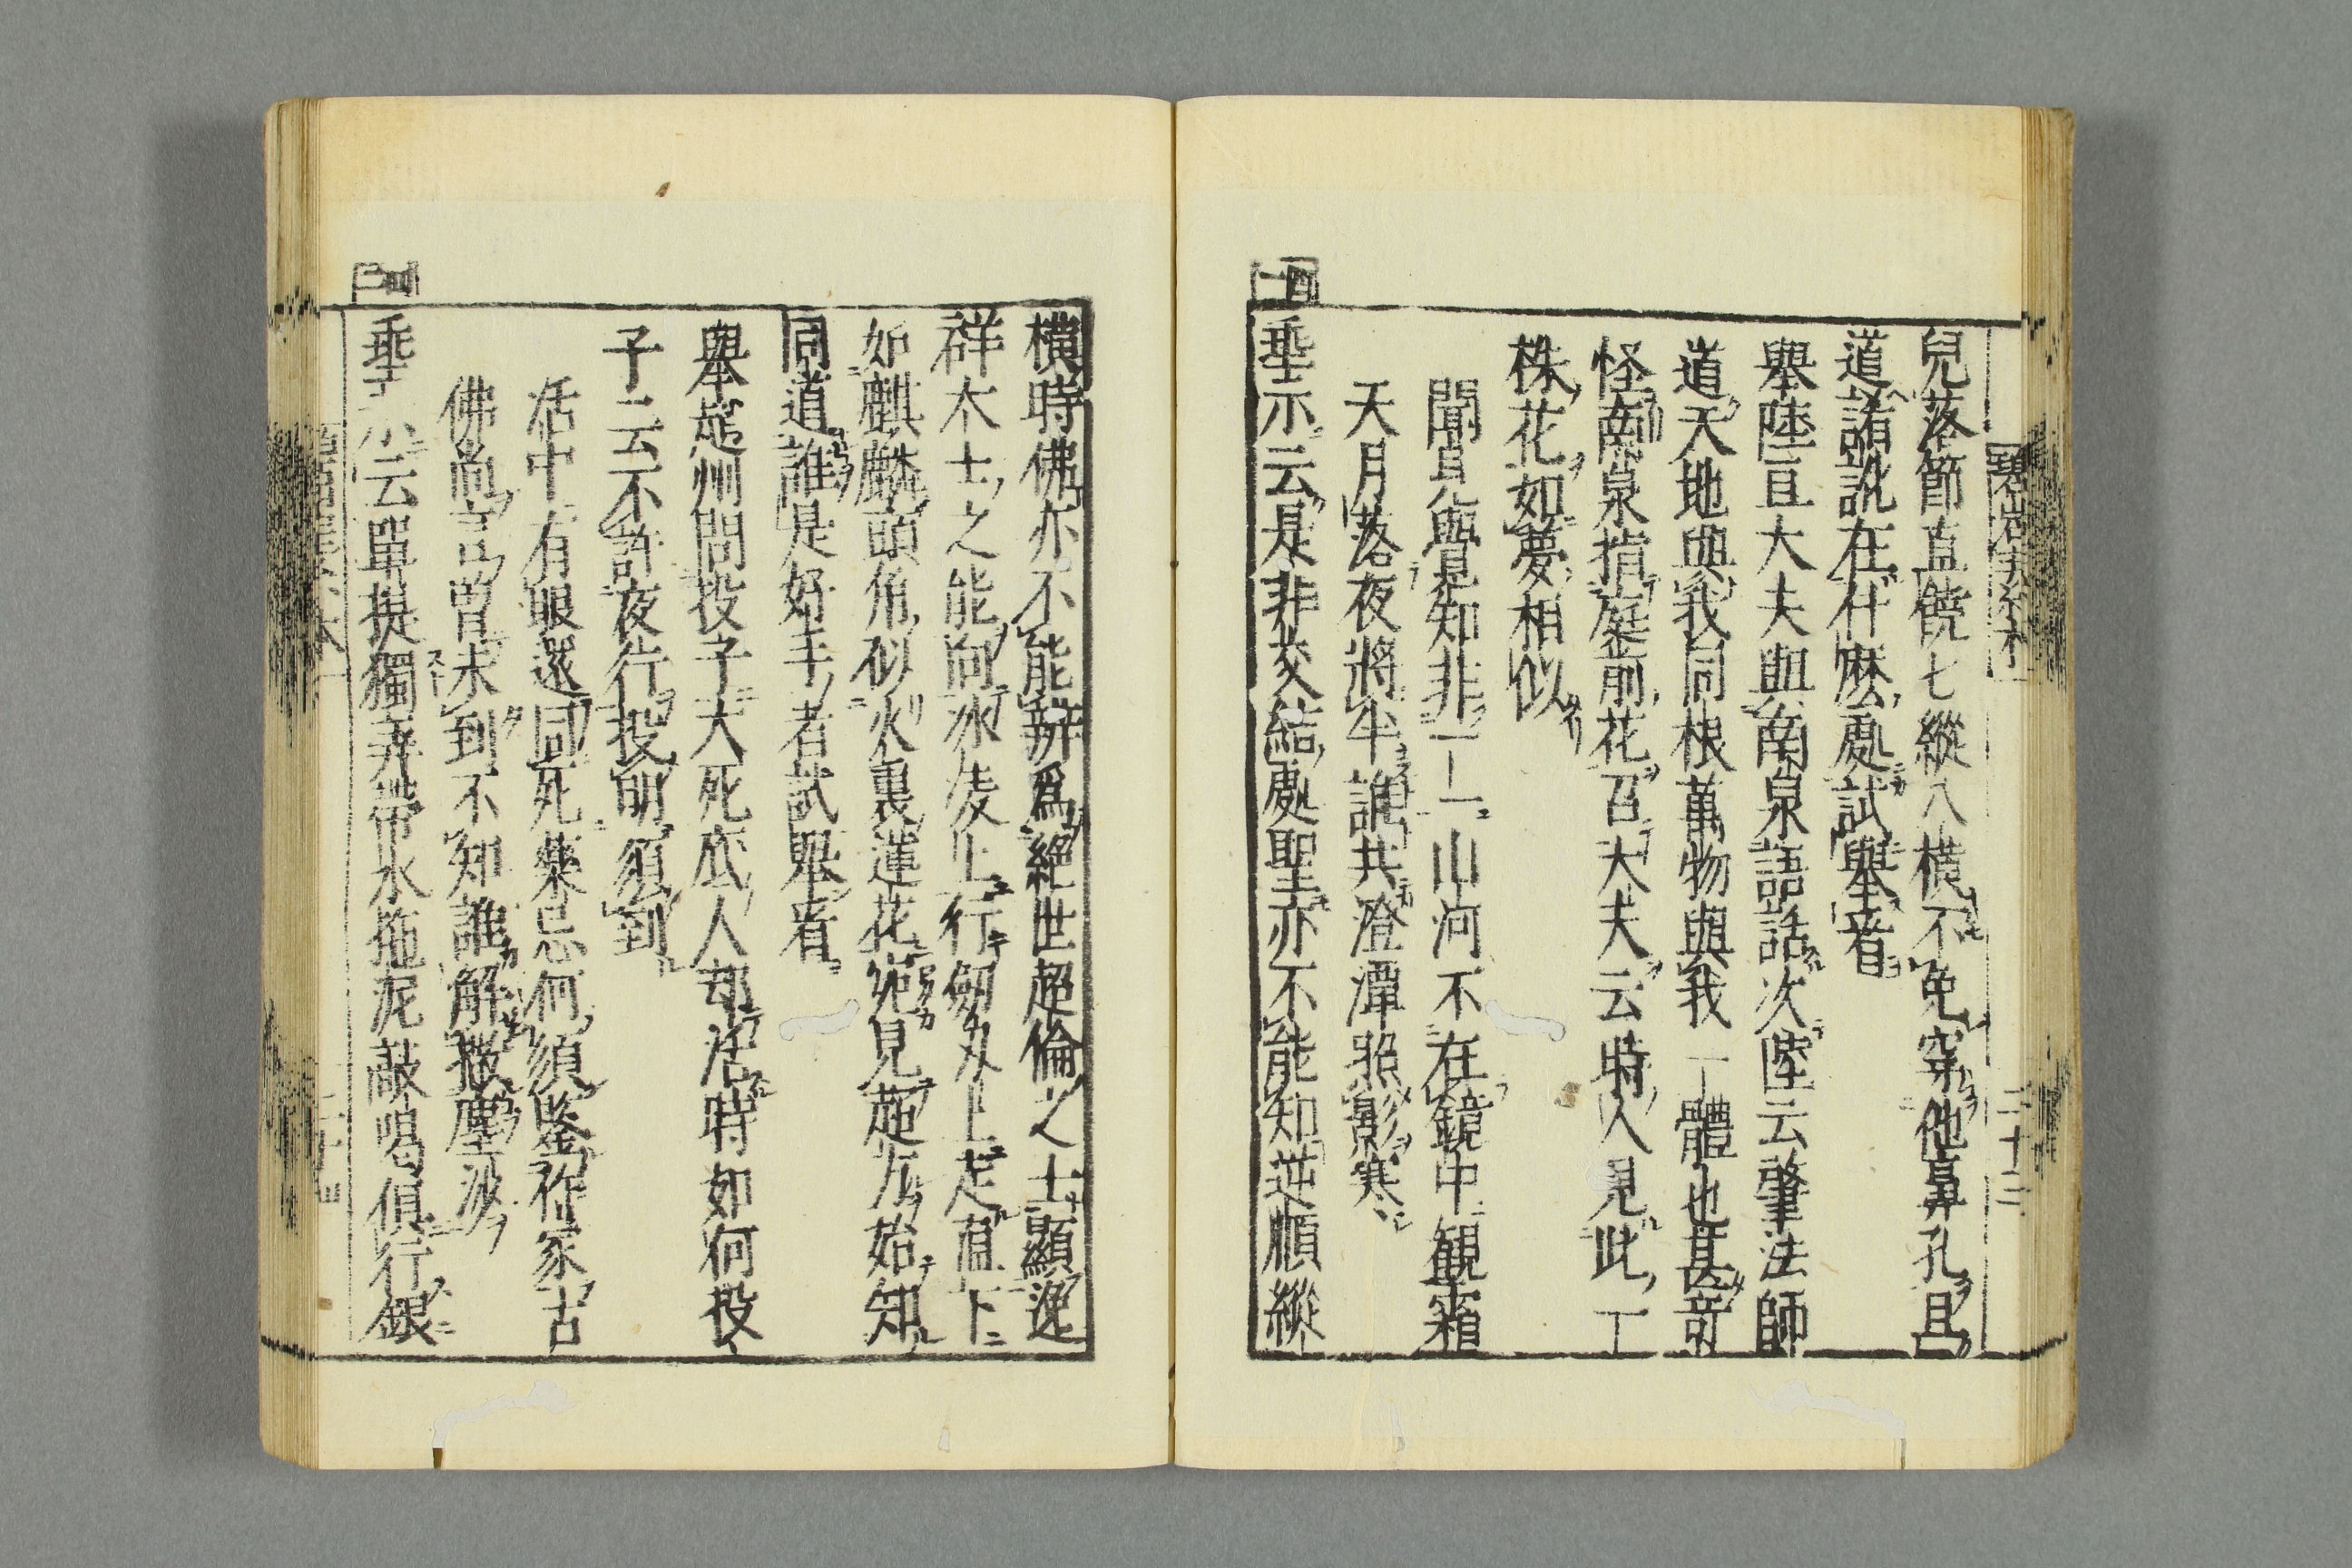 兒落節直饒七縱八横不免穿他鼻孔且
道諸訛在什麽處試擧看
擧陸亘大夫與南泉語話次陸云肇法師
道天地與我同根萬物與我一體也甚奇
怪南泉指庭前花召大夫云時人見此一
株花如夢相似
聞見覺知非一一山河不在鏡中觀霜
天月落夜將半誰共澄潭照影寒
四一
垂示云是非交結處聖亦不能知逆順縱
横時佛亦不能辨爲絶世超倫之士顯逸
群大士之能向氷凌上行劔刄上走直下
如麒麟頭角似火裏蓮花宛見超方始知
同道誰是好手者試擧看
擧趙州問投子大死底人却活時如何投
子云不許夜行投明須到
活中有眼還同死藥忌何須鑒作家古
佛尚言曾未到不知誰解撒塵沙
四二
垂示云單提獨弄帶水拖泥敲唱俱行銀